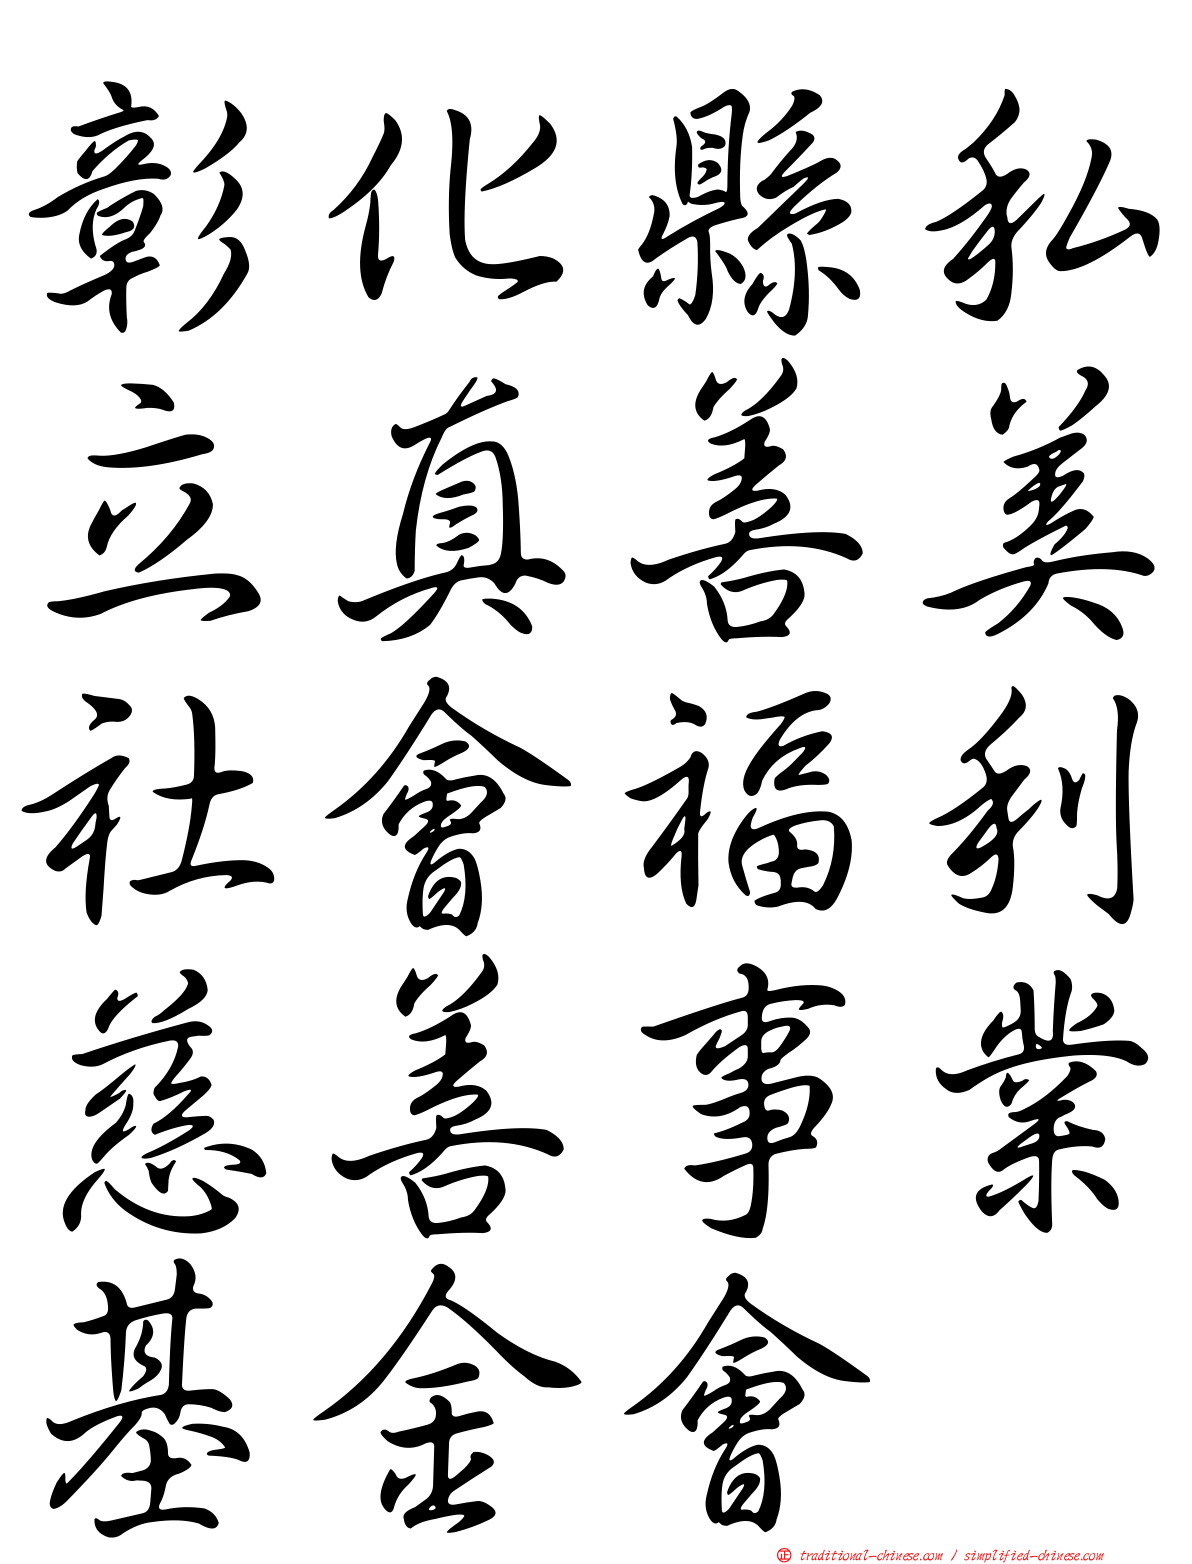 彰化縣私
立真善美
社會福利
慈善事業
基金會
正 traditional-chinese.com / simplified-chinese.com